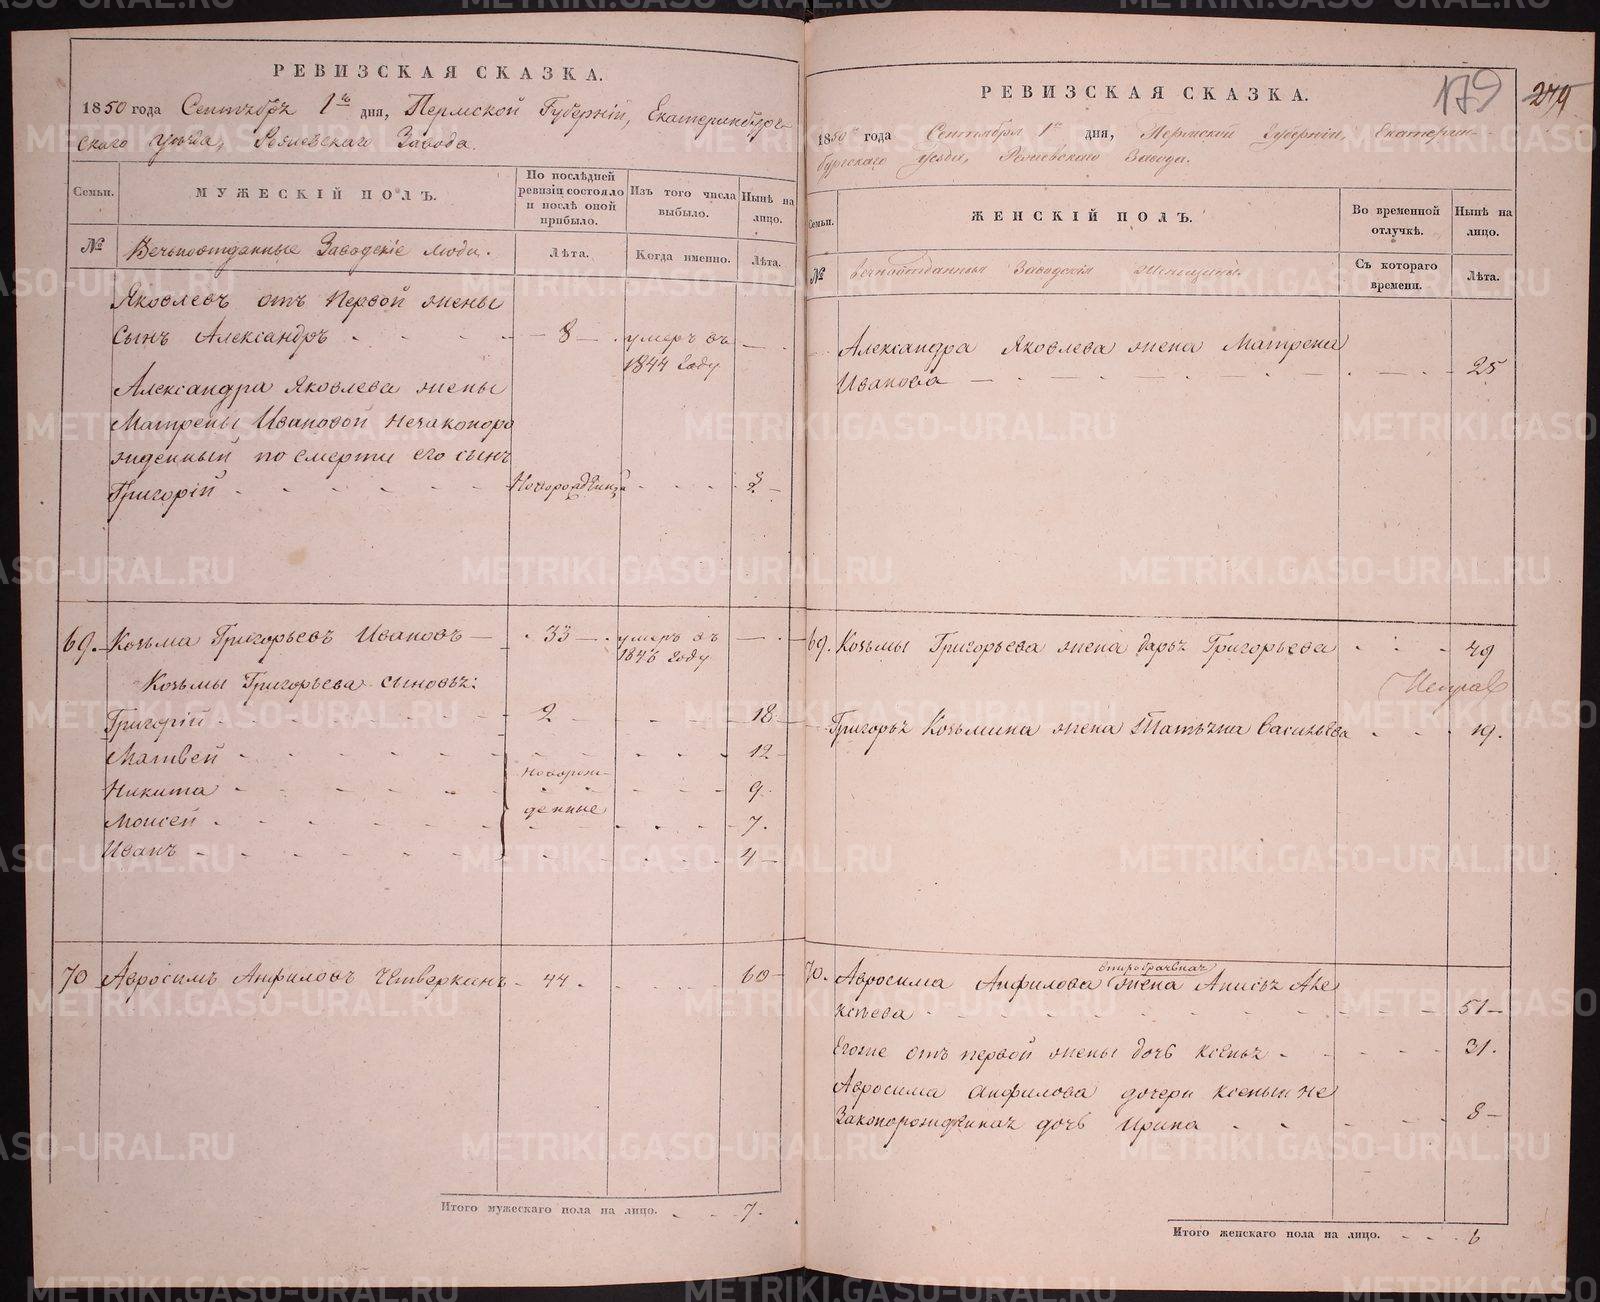 РЕВИЗСКАЯ СКАЗКА.
1850 года Сентября 1го дня, Пермской Губерніи, Екатеринбург-
скаго уѣзда, Завода.
Семьи. МУЖЕСКІЙ ПОЛЪ. По послѣдней ревизіи состояло и послѣ оной прибыло. Изъ того числа выбыло. Нынѣ на лицо.
№ Вечноотданные Заводскіе люди. Лѣта. Когда именно. Лѣта.
Яковлевъ отъ первой жены
сынъ Александръ 8 умеръ въ
1844 году
Александра Яковлева жены
Матрены Ивановой незаконоро
жденный по смерти его сынъ
Григорій 3
69. Козьма Григорьевъ Ивановъ 33 умеръ въ
1846 году
Козьмы Григорьева сыновья:
Григорій 2 18
Матвей 12
Никита новорож- 9
Моисей денные 7.
Иванъ 4
70 Авросимъ Анфиловъ Четверкинъ 44 60
Итого мужескаго пола на лицо. 7.
РЕВИЗСКАЯ СКАЗКА.
179 279
1850го года Сентября 1го дня, Пермской Губерніи, Екатерин-
бургскаго уезда, Завода.
Семьи. ЖЕНСКІЙ ПОЛЪ. Во временной отлучкѣ. Нынѣ на лицо.
№ вечноотданныя Заводскія женщины. Съ котораго времени. Лѣта.
Александра Яковлева жена Матрена
Иванова 25
69. Козьмы Григорьева жена дарья Григорьева 49
Григорья Козьмина жена Татьяна Васильева 19.
70. Авросима Анфилова второбрачная жена Анисья Але
ксѣева 51
Егоже отъ первой жены дочь ксенья 31.
Авросима Анфилова дочери ксеньи не
законорожденная дочь Ирина 8
Итого женскаго пола на лицо. 6
METRIKI.GASO-URAL.RU